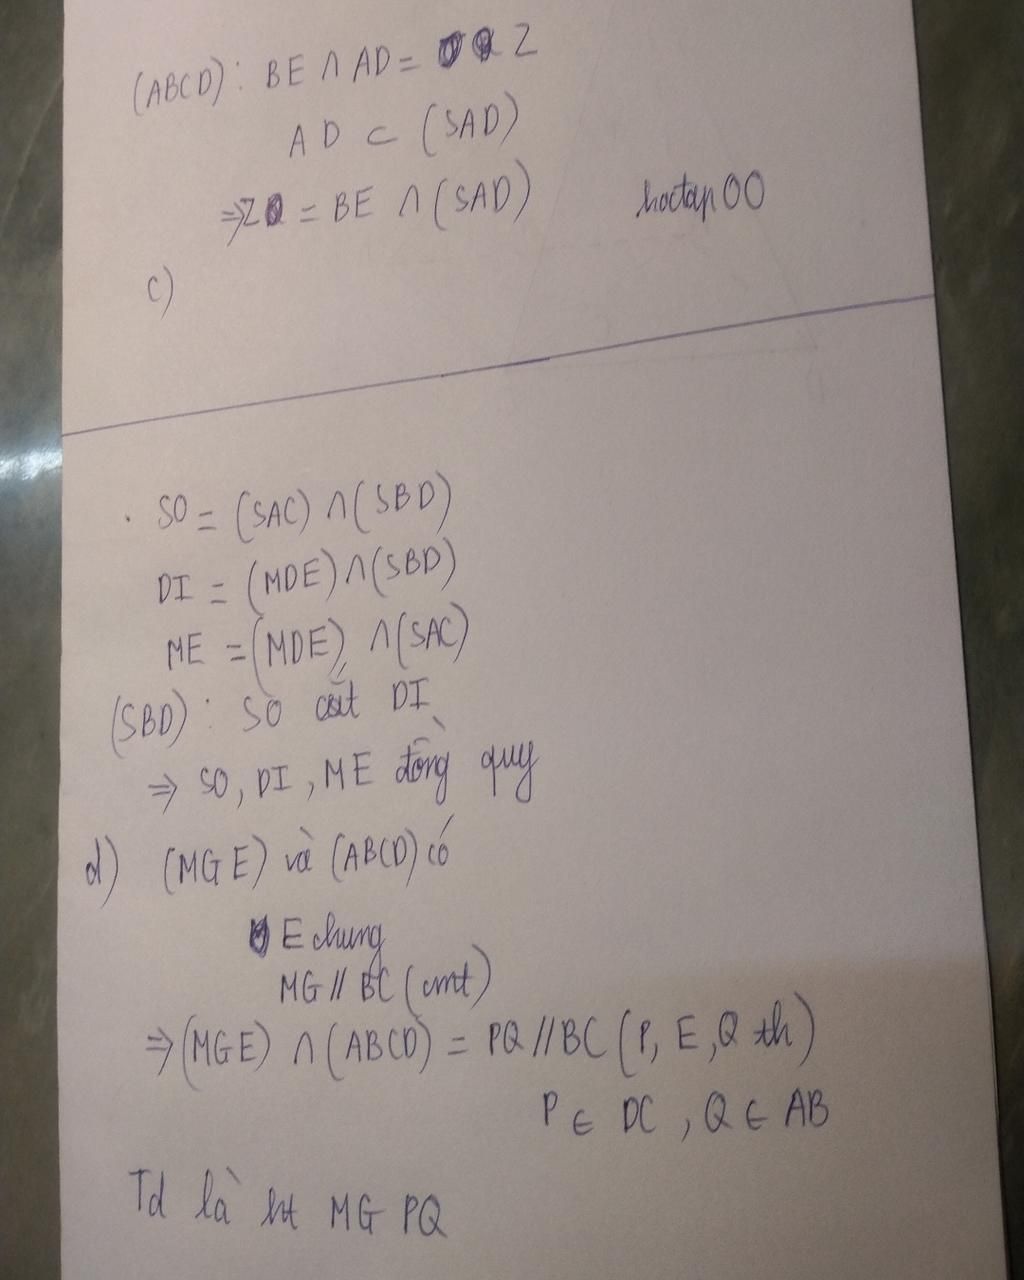 (ABCD): BE ∩ AD = Z
AD ⊂ (SAD)
⇒ Z = BE ∩ (SAD)
hoctap00
c)
. SO = (SAC) ∩ (SBD)
DI = (MDE) ∩ (SBD)
ME = (MDE) ∩ (SAC)
(SBD): SO cắt DI
⇒ SO, DI, ME đồng quy
d) (MGE) và (ABCD) có
E chung
MG // BC (cmt)
⇒ (MGE) ∩ (ABCD) = PQ // BC (P, E, Q th)
P ∈ DC, Q ∈ AB
Td là ht MG PQ